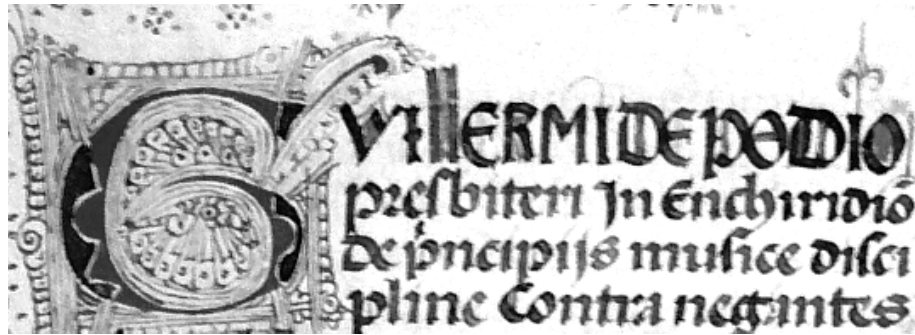 GVILLERMI DE PODIO
presbiteri In Enchiridiō
de p̓ncipijs musice disci
pline Contra negantes